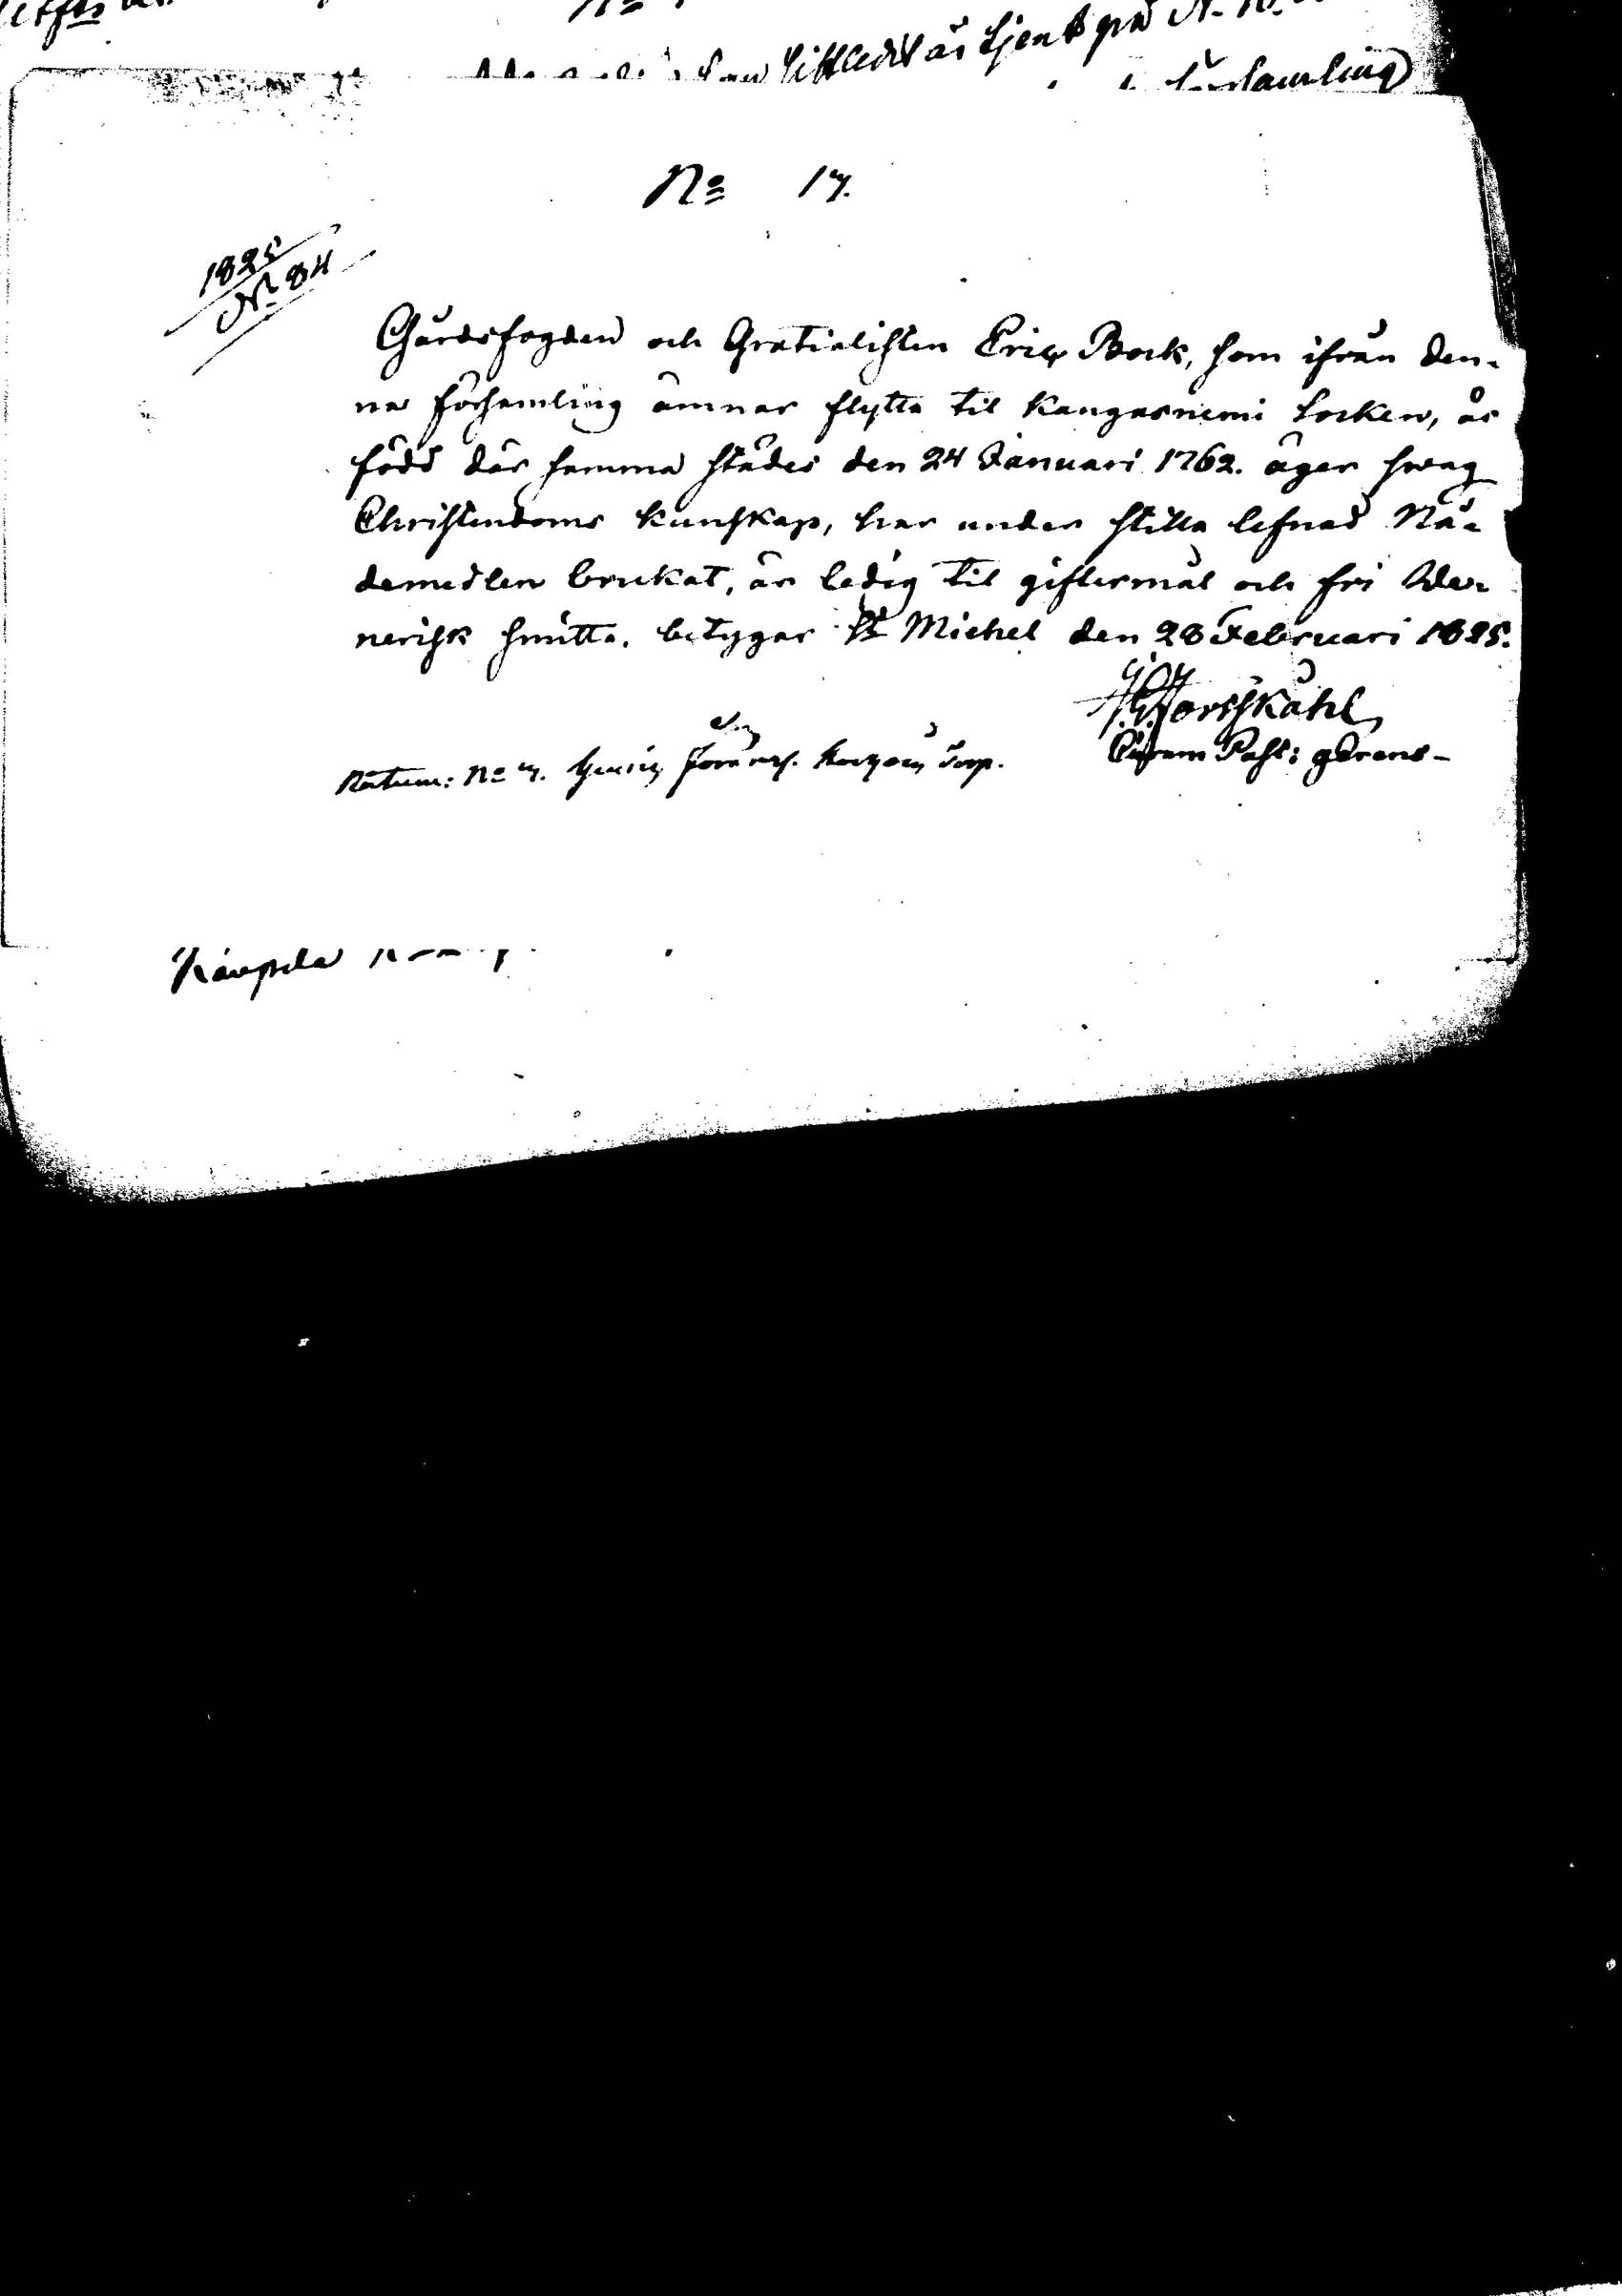 är tjent på N.
församling
No 17.
1825
No 84
Gårdsfogden och Gratialisten Eric Bock, som ifrån den-
na församling ämnar flytta til Kangasniemi Socken, är
född där samma städes den 24 Januari 1762. äger swag
Christendoms kunskap, har under stilla lefnad Nå-
demedlen brukat, är ledig til giftermål och fri We-
nerisk smitta. betygar St Michel den 28 Februari 1825.
Forsskåhl
Curam Past: gerens-
No 7.